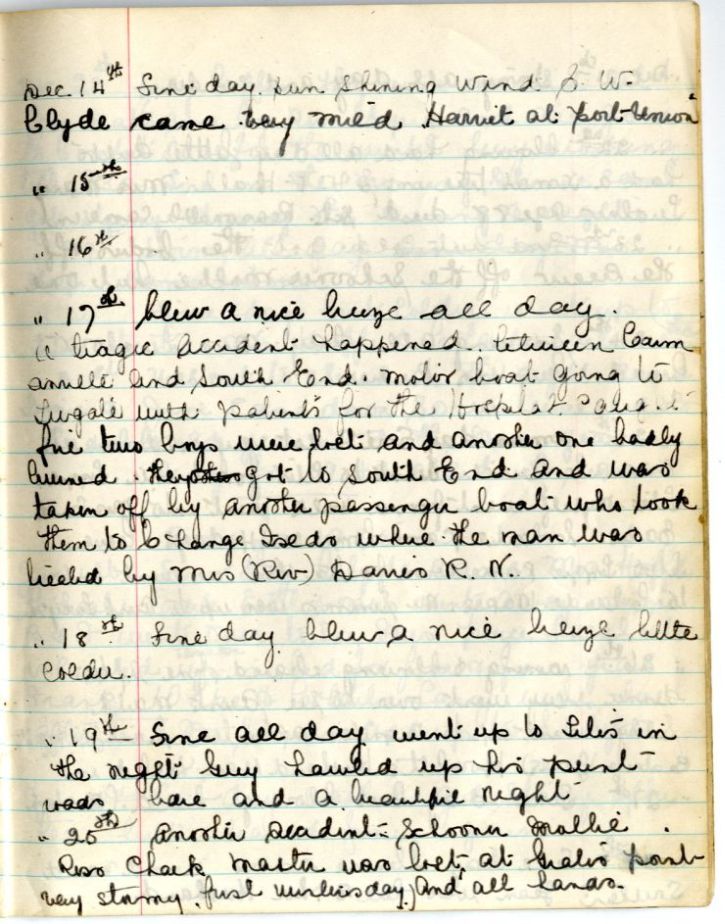 Dec. 14th Fine day. sun shining wind S. W.
Clyde came. very mild. Harriet at Port Union
" 15th
" 16th
" 17th blew a nice breeze all day.
A tragic accident happened. between Carm
anville and South End. motor boat going to
Twgate with patients for the Hospital caught
fire two boys were lost and another one badly
burned. they got to South End and was
taken off by another passenger boat who took
them to Change Islds where the man was
treated by Mrs (Rev) Davis R. N.
" 18th Fine day blew a nice breeze little
colder.
" 19th Fine all day went up to in
the night Guy hawled up his punt
roads bare and a beautiful night
" 20th Another accident: Schooner Mollie
Ross Chalk, master was lost, at point
very stormy. first winters day) and all hands.